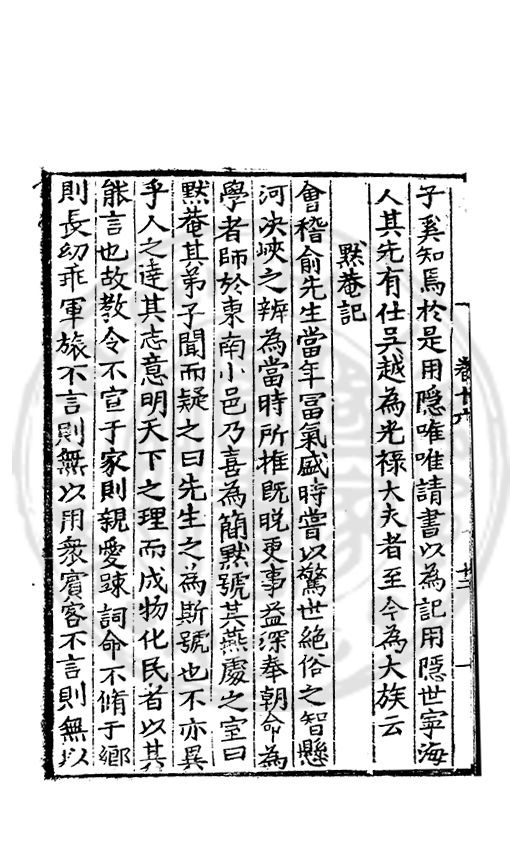 卷十六
廿二
子奚知焉於是用隱唯唯請書以為記用隱世寧海
人其先有仕吳越為光祿大夫者至今為大族云
默菴記
會稽俞先生當年富氣盛時嘗以驚世絕俗之智懸
河決峽之辨為當時所推既晚更事益深奉朝命為
學者師於東南小邑乃喜為簡默號其燕處之室曰
默菴其弟子聞而疑之曰先生之為斯號也不亦異
乎人之達其志意明天下之理而成物化民者以其
能言也故教令不宣于家則親愛踈詞命不脩于鄉
則長幼乖軍旅不言則無以用衆賓客不言則無以